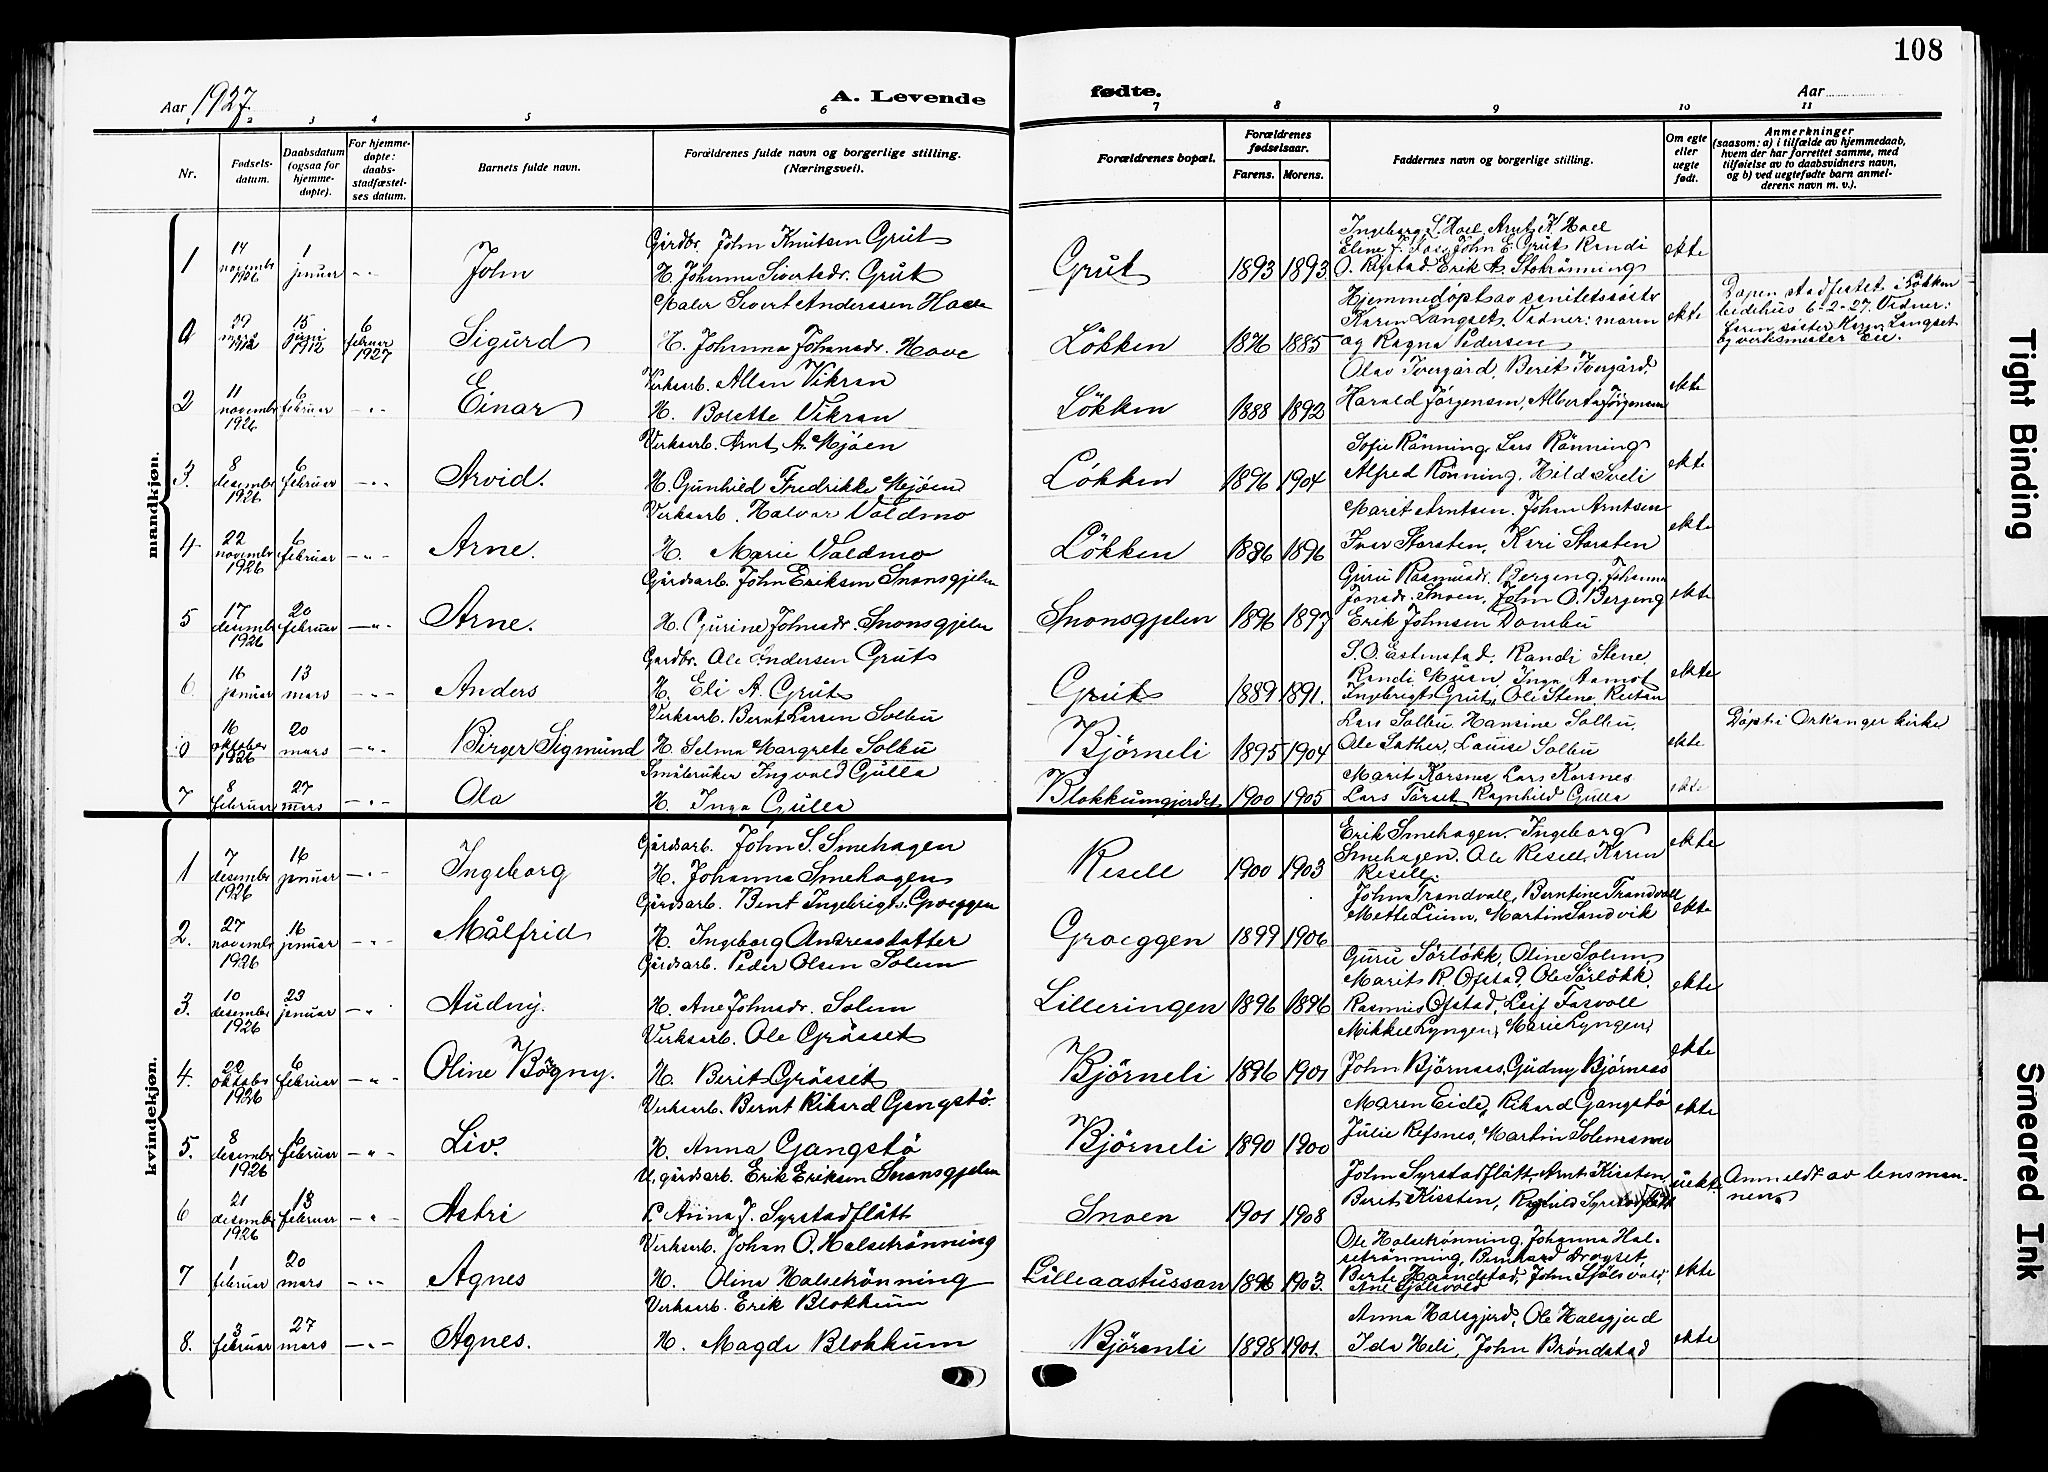 108
Aar 1927.
A. Levende
fødte.
Aar
1 2 3 4 5 6 7 8 9 10 11
Nr.
Fødsels-
datum.
Daabsdatum
(ogsaa for
hjemme-
døpte).
For hjemme-
døpte:
daabs-
stadfæstel-
ses datum.
Barnets fulde navn.
Forældrenes fulde navn og borgerlige stilling.
(Næringsvei).
Forældrenes bopæl.
Forældrenes
fødselsaar.
Farens. Morens.
Faddernes navn og borgerlige stilling.
Om egte
eller
uegte
født.
Anmerkninger
(saasom: a) i tilfælde av hjemmedaab,
hvem der har forrettet samme, med
tilføielse av to daabsvidners navn,
og b) ved uegtefødte barn anmel-
derens navn m. v.).
mandkjøn.
1 14 novembr 1926 1 januar -"- John
Gårdbr. John Knutsen Grut
H. Johanna Sivertsdr. Grut
Grut 1893 1893
Ingeborg S. Hoel, Arnt K. Hoel
John E. Grut, Randi
O. Rystad, Erik A. Stokrönning
ekte
0 29 mars 1912 15 juni 1912 6 februar 1927 Sigurd
Maler Sivert Anderssen Hove
H. Johanna Johansdr. Hove
Lökken 1876 1885
Hjemmedöpt av sanitetssöstr
Karen Langset. Vidner: moren
og Ragna Pedersen
ekte
Dåpen stadfestet i Lökken
bedehus 6-2-27. Vidner:
söster Karen Langset
og verksmester Eie.
2 11 novembr 1926 6 februar -"- Einar
Verksarb. Allan Vikran
H. Borette Vikran
Lökken 1888 1892
Olav Tvergård, Berit Tvergård,
Harald Jörgensen, Alberta Jörgensen
ekte
3. 8 desembr 1926 6 februar -"- Arvid.
Verksarb. Arnt A. Mjöen
H. Gunhild Fredrikke Mjöen
Lökken 1896 1904
Sofie Rönning, Lars Rönning
Alfred Rönning, Hild Sveli
ekte
4 22 novembr 1926 6 februar -"- Arne.
Verksarb. Halvar Voldmo
H. Marie Voldmo
Lökken 1886 1896
Marit Arntsen, John Arntsen
Ivar Storsten, Kari Storsten
ekte
5 17 desembr 1926 20 februar -"- Arne.
Gårdsarb. John Eriksen Snonsgjelen
H. Gurine Johnsdr. Snonsgjelen
Snonsgjelen 1896 1897
Guru Rasmusdr. Bergeng, Johanna
Jonsdr. Snoen, John O. Bergeng
Erik Johnsen Dombu
ekte
6 16 januar 13 mars -"- Anders
Gardbr. Ole Andersen Grut
H. Eli A. Grut
Grut 1889 1891.
S. O. Estenstad, Randi Stene
Randi Muan, Inga Aamot
Ingebrigt Grut, Ole Stene
ekte
0 16 oktober 1926 20 mars -"- Birger Sigmund
Verksarb. Bernt Larsen Solbu
H. Selma Margrete Solbu
Björneli 1895 1904
Lars Solbu, Hansine Solbu,
Ole Sather, Louise Solbu
ekte
Döpt i Orkanger kirke
7 8 februar 27 mars -"- Ola
Småbruker Ingvald Gulla
H. Inga Gulla
Blokkumgjerdet 1900 1905
Marit Korsnes, Lars Korsnes
Lars Törset, Ragnhild Gulla
ekte
kvindekjøn.
1 7 desembr 1926 16 januar -"- Ingeborg
Gårdsarb. John S. Smehagen
H. Johanna Smehagen
Resell 1900 1903
Erik Smehagen, Ingeborg
Smehagen, Ole Resell, Karen
Resell.
ekte
2. 27 novembr 1926 16 januar -"- Målfrid
Gårdsarb. Bent Ingebrigts. Groeggen
H. Ingeborg Andreasdatter
Groeggen 1899 1906
John Trandvoll, Berntine Trandvoll
Mette Lium, Martin Sandvik
ekte
3. 10 desembr 1926 23 januar -"- Audny.
Gårdsarb. Peder Olsen Solem
H. Ane Johnsdr. Solem
Lilleringen 1896 1896
Guru Sörlökk, Oline Solem
Marit R. Ofstad, Ole Sörlökk,
Rasmus Ofstad, Leif Fasvoll
ekte
4. 22 oktober 1926 6 februar -"- Oline Borgny.
Verksarb. Ole Grösset
H. Berit Grösset
Björneli 1896 1901
Mikkel Lyngen, Marie Lyngen,
John Björnaas, Gudny Björnaas
ekte
5. 8 desembr 1926 6 februar -"- Liv.
Verksarb. Bernt Rikard Gangstö.
H. Anna Gangstö
Björneli 1890 1900
Maren Eide, Rikard Gangstö
Julie Refsnes, Martin Solemsmo
ekte
6 21 desembr 1926 13 februar -"- Astri
U. gårdsarb. Erik Eriksen Snonsgjelen
P. Anna J. Syrstadflått
Snoen 1901 1908
John Syrstadflått, Arnt Kissten,
Berit Kissten, Ragnhild Syrstadflått
uekte
Anmeldt av lensman-
nen
7 1 februar 20 mars -"- Agnes
Verksarb. Johan O. Halsetrönning
H. Olina Halsetrönning
Lilleaastussan 1896 1903.
Ole Halsetrönning, Johanna Hal-
setrönning, Bernhard Dragset,
Berte Haandstad, John Sjölsvold,
Ane Sjölsvold
ekte
8. 3 februar 27 mars -"- Agnes.
Verksarb. Erik Blokkum
H. Magda Blokkum
Björenli 1898 1901.
Anna Halsgjerd, Ole Halsgjerd
Ida Heli, John Bröndstad
ekte
Tight Binding
Smeared Ink